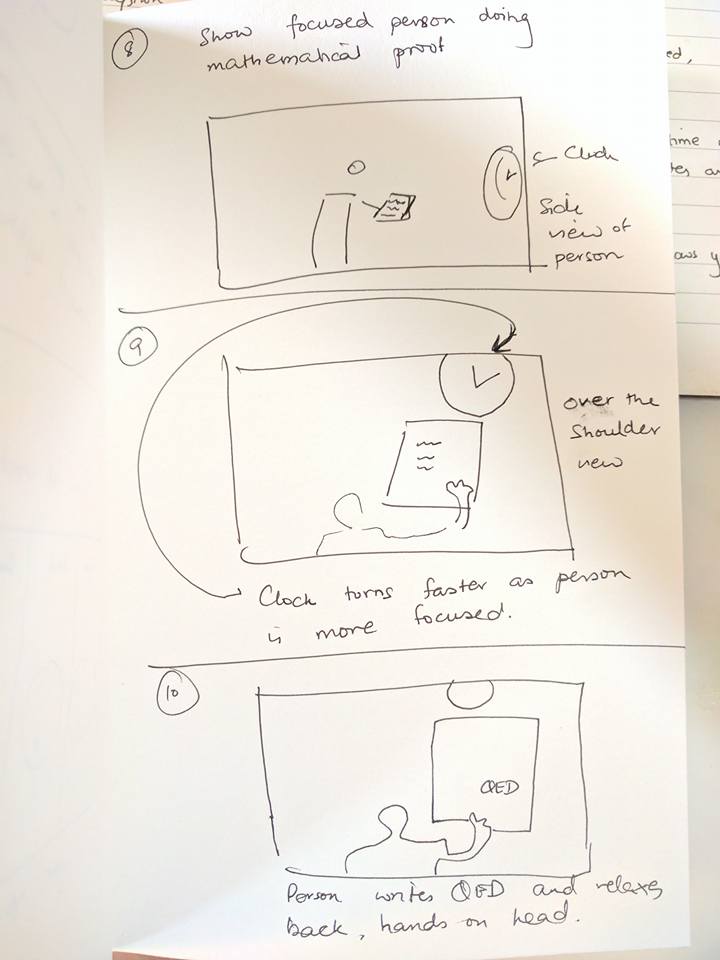 8
Show focused person doing
mathematical proof
Clock
Side
view of
person
9
over the
shoulder
view
Clock turns faster as person
is more focused.
10
QED
Person writes QED and relaxes
back, hands on head.
ed,
time